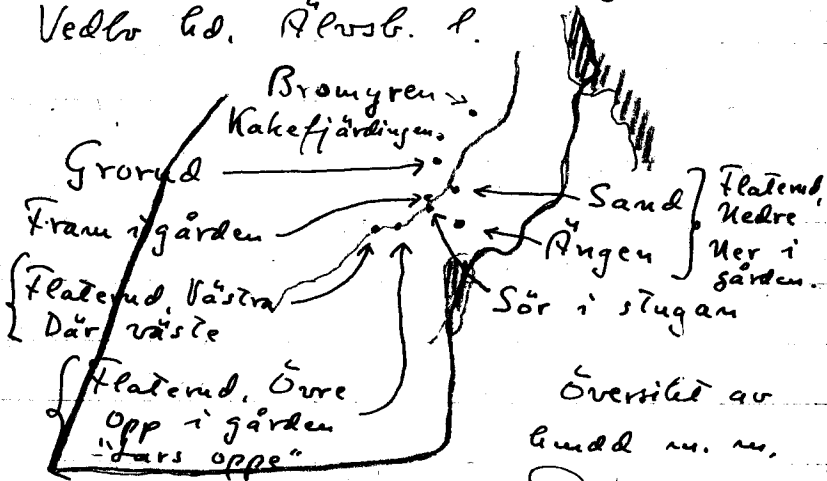 Vedbo hd. Älvsb. l.
Bromyren
Kakefjärdingen.
Grorud
Fram i gården
Flaterud, Västra
Där väste
Flaterud, Övre
Opp i gården
"Lars oppe"
Sand
Ängen
Flaterud,
Nedre
Ner i
gården.
Sör i stugan
Översikt av